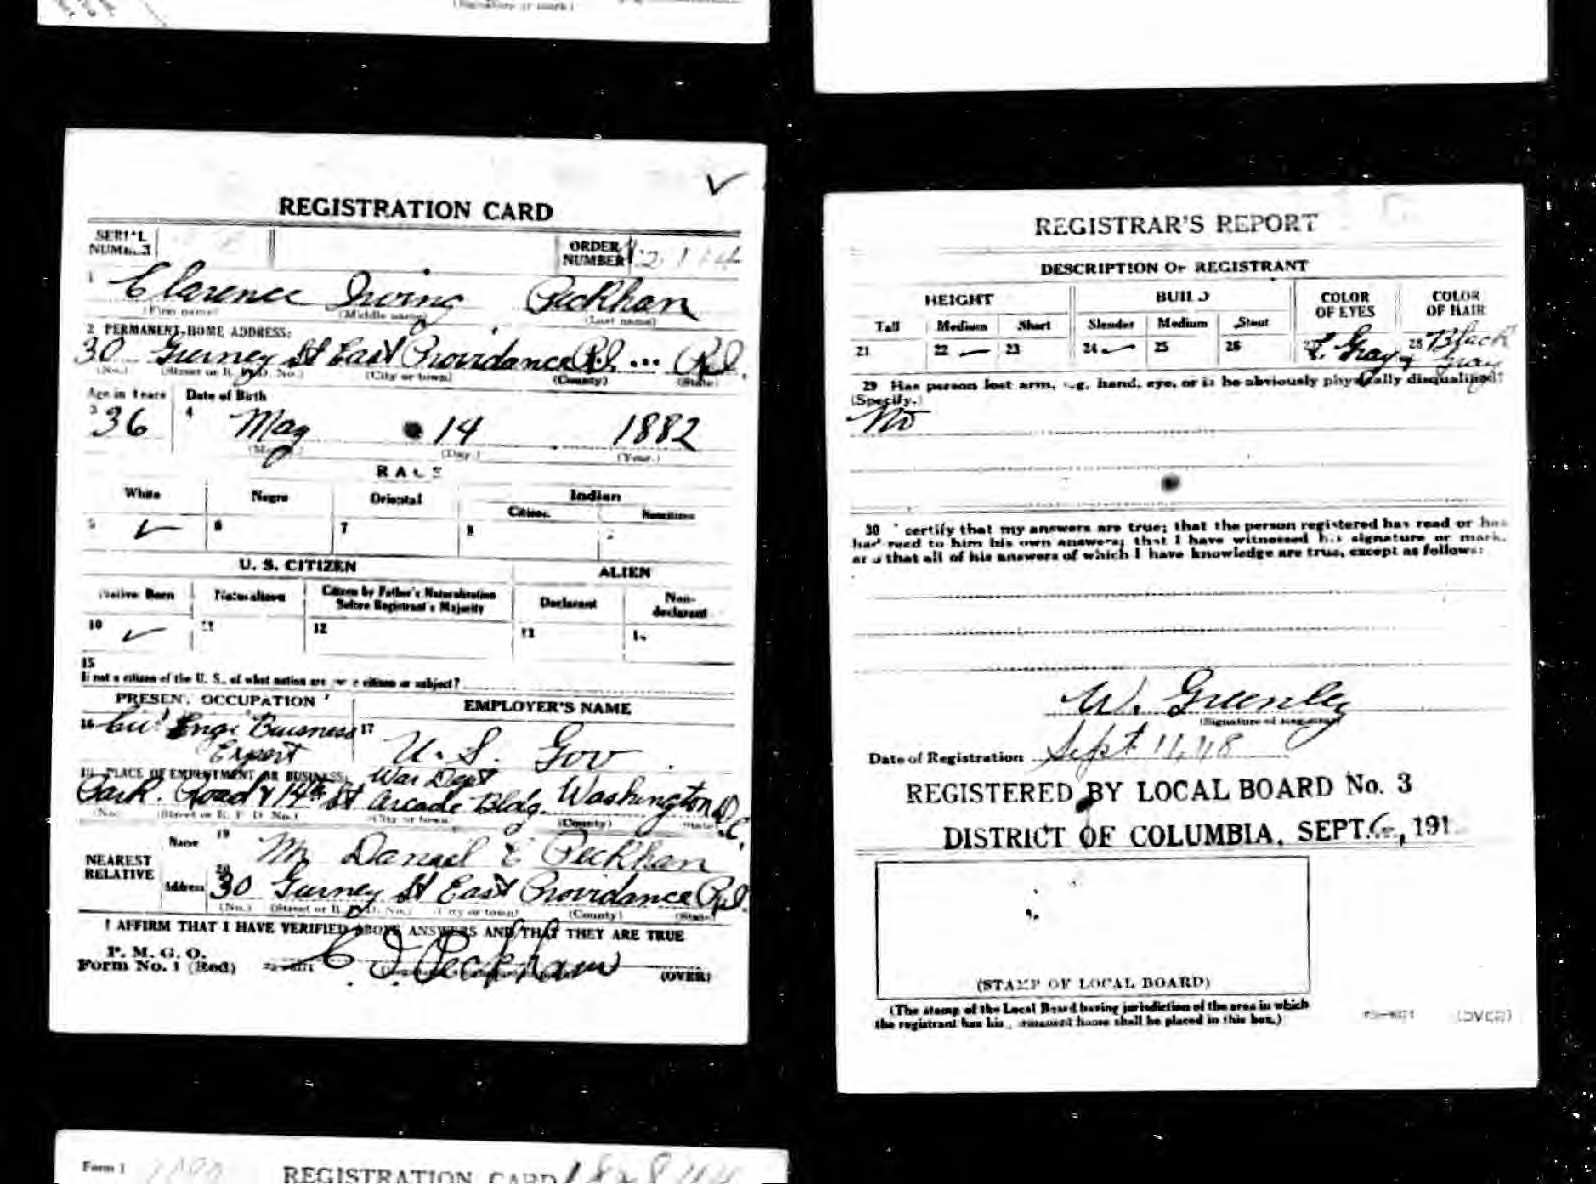 REGISTRATION CARD
SERIAL NUMBER
ORDER NUMBER
1 Clarence Irving Peckham
(First name) (Middle name) (Last name)
2 PERMANENT HOME ADDRESS:
30 Gurney St East Providance R.I. ... R.I.
(No.) (Street or R. F. D. No.) (City or town) (County) (State)
Age in Years Date of Birth
3 36 4 May 14 1882
(Month.) (Day.) (Year.)
RACE
White Negro Oriental Indian
Citizen. Noncitizen
5 ✓ 6 7 8
U. S. CITIZEN ALIEN
Native Born Naturalized Citizen by Father's Naturalization Before Registrant's Majority Declarant Non-declarant
10 ✓ 11 12 13 14
15
If not a citizen of the U. S., of what nation are you a citizen or subject?
PRESENT OCCUPATION EMPLOYER'S NAME
16 Civil Engr Buisness 17 U. S. Gov.
Expert
18 PLACE OF EMPLOYMENT OR BUSINESS: War Dept
Park. Road & 14th St Arcade Bldg. Washington D.C.
(No.) (Street or R. F. D. No.) (City or town) (County) (State)
NEAREST RELATIVE
Name 19 Mr Danael E Peckham
Address 20 30 Gurney St East Providance R.I.
(No.) (Street or R. F. D. No.) (City or town) (County) (State)
I AFFIRM THAT I HAVE VERIFIED ABOVE ANSWERS AND THAT THEY ARE TRUE
P. M. G. O.
Form No. 1 (Red) C I Peckham (OVER)
REGISTRAR'S REPORT
DESCRIPTION OF REGISTRANT
HEIGHT BUILD COLOR OF EYES COLOR OF HAIR
Tall Medium Short Slender Medium Stout
21 22 ✓ 23 24 ✓ 25 26 27 L. Gray 28 Black
Gray
29 Has person lost arm, leg, hand, eye, or is he obviously physically disqualified?
(Specify.)
No
30 I certify that my answers are true; that the person registered has read or has
had read to him his own answers; that I have witnessed his signature or mark,
and that all of his answers of which I have knowledge are true, except as follows:
W. Greenley
(Signature of Registrar)
Date of Registration Sept 11, 18
REGISTERED BY LOCAL BOARD No. 3
DISTRICT OF COLUMBIA, SEPT. , 191
(STAMP OF LOCAL BOARD)
(The stamp of the Local Board having jurisdiction of the area in which
the registrant has his permanent home shall be placed in this box.)
(OVER)
Form 1 REGISTRATION CARD